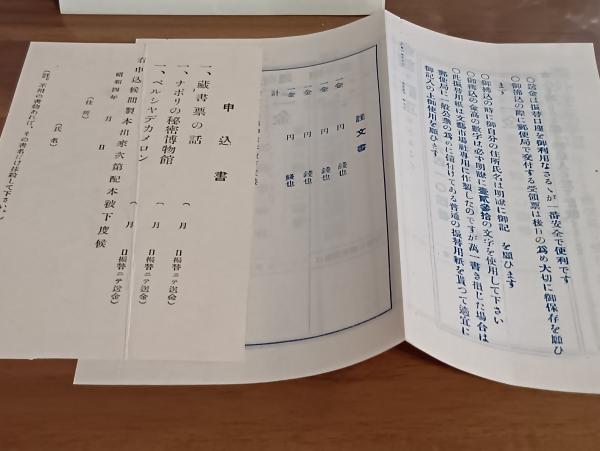 ◇送金は振替口座を御利用なさるゝが一番安全で便利です
◇御拂込の際に郵便局で交付する受領票は後日の爲め大切に御保存を願ひ
ます
◇御拂込の時に御自分の住所氏名は明瞭に御記
を願ひます
◇御拂込の金高の數字は必ず明瞭に壹貳參拾の文字を使用して下さい
◇此振替用紙は文藝市場社専用に作製したのですが萬一書き損じた場合は
郵便局に一般公衆の爲めに備付けてある普通の振替用紙を貰つて適宜に
御記入の上御使用を願ひます
註文書
一金 円 錢也
一金 円 錢也
一金 円 錢也
一金 円 錢也
計 円 錢也
申込書
一、藏書票の話 ( 月 日振替ニテ送金)
一、ナポリの秘密博物館 ( 月 日振替ニテ送金)
一、ペルシヤデカメロン ( 月 日振替ニテ送金)
右申込候間製本出來次第配本被下度候
昭和四年 月 日
(住所)
(氏名)
(註、不用の書物の